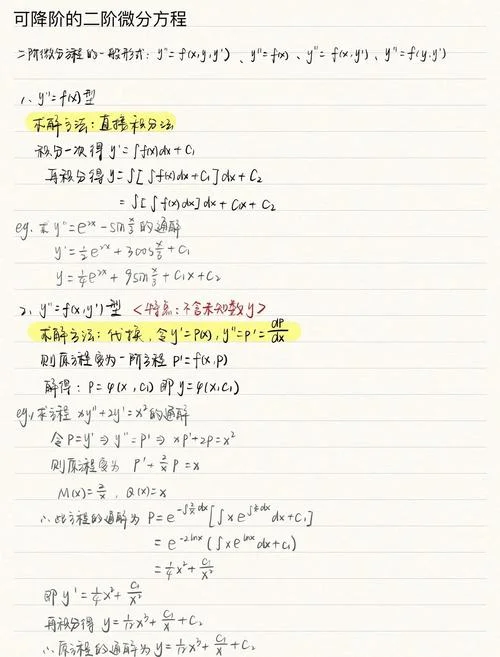 可降阶的二阶微分方程
二阶微分方程的一般形式: y''=f(x,y,y')、y''=f(x)、y''=f(x,y')、y''=f(y,y')
1、y''=f(x)型
求解方法:直接积分法
积分一次得 y'=∫f(x)dx+C₁
再积分得 y=∫[∫f(x)dx+C₁]dx+C₂
=∫[∫f(x)dx]dx+C₁x+C₂
eg. 求 y''=e²ˣ-sin x/3 的通解
y'=½e²ˣ+3cos x/3+C₁
y=¼e²ˣ+9sin x/3+C₁x+C₂
2、y''=f(x,y')型 <特点:不含未知数y>
求解方法:代换,令y'=P(x), y''=P'=dP/dx
则原方程变为一阶方程 P'=f(x,P)
解得: P=φ(x,C₁) 即 y'=φ(x,C₁)
eg. 求方程 xy''+2y'=x² 的通解
令P=y' ⇒ y''=P' ⇒ xP'+2P=x²
则原方程变为 P'+2/x P=x
M(x)=2/x, Q(x)=x
∴此方程的通解为 P=e^(-∫2/x dx)[∫xe^(∫2/x dx)dx+C₁]
=e^(-2lnx)(∫xe^(lnx)dx+C₁)
=¼x²+C₁/x²
即 y'=¼x²+C₁/x²
再积分得 y=1/12 x³+C₁/x+C₂
∴原方程的通解为 y=1/12 x³+C₁/x+C₂